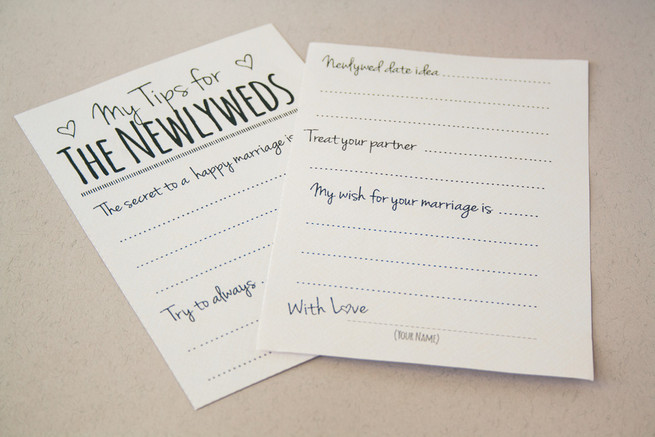 My Tips for
THE NEWLYWEDS
The secret to a happy marriage is
Try to always
Newlywed date idea
Treat your partner
My wish for your marriage is
With Love
(YOUR NAME)